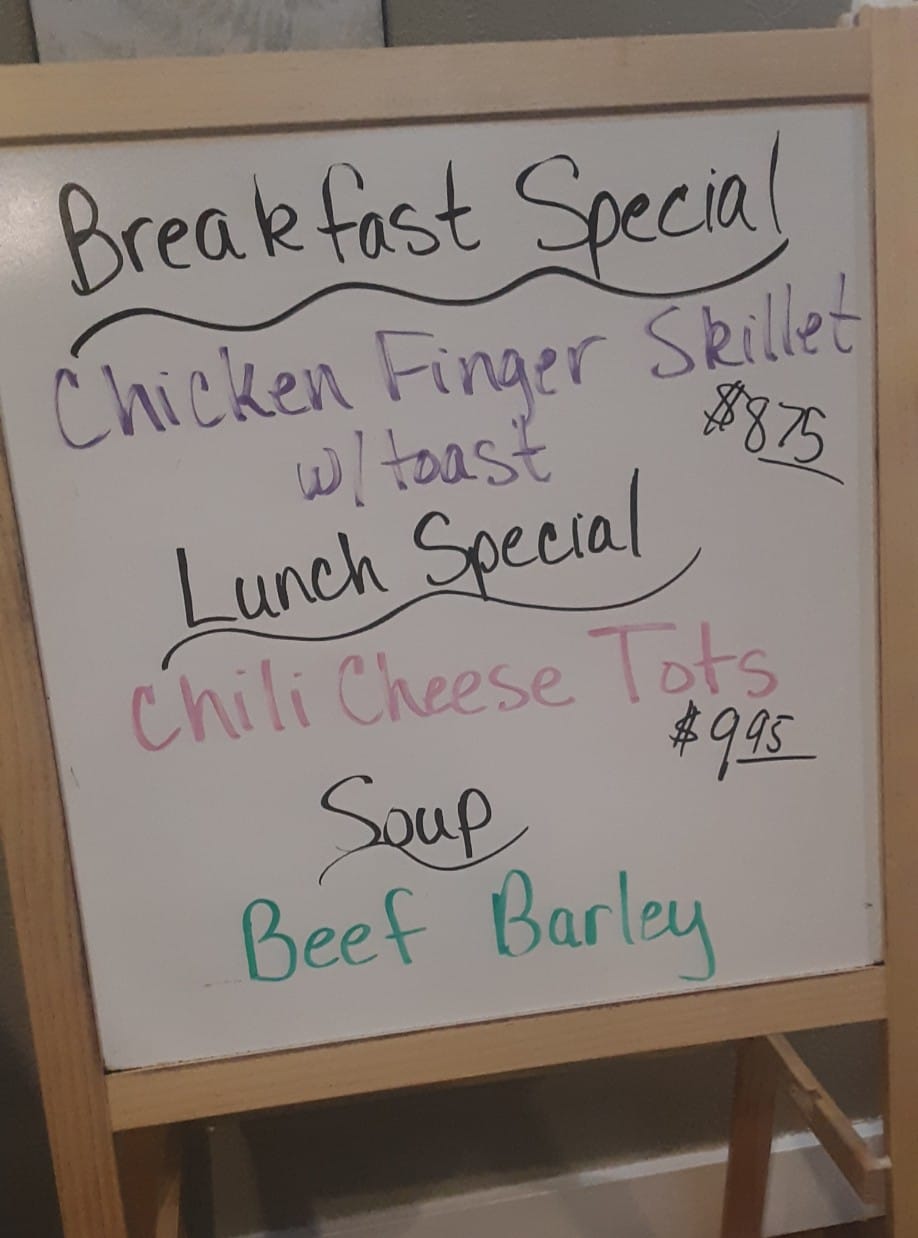 Breakfast Special
Chicken Finger Skillet
w/toast
$8 75
Lunch Special
Chili Cheese Tots
$9 95
Soup
Beef Barley